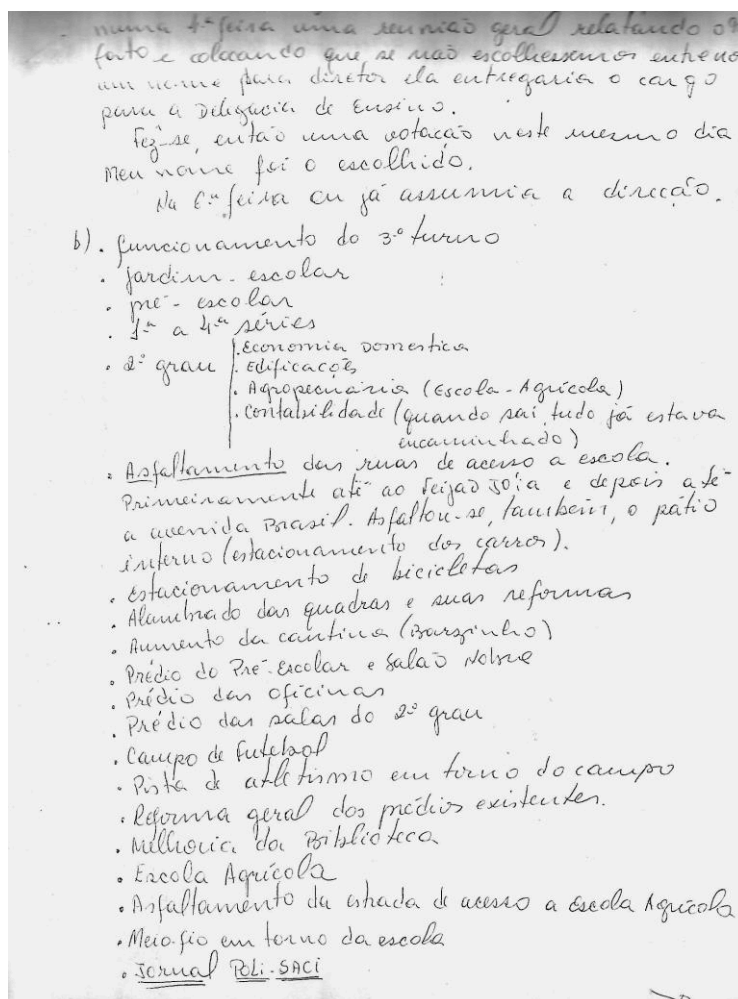 numa 4ª feira uma reunião geral relatando o
fato e colocando que, se não escolhessemos entre nos
um nome para diretor ela entregaria o cargo
para a Delegacia de Ensino.
Fez-se, então uma votação neste mesmo dia
Meu nome foi o escolhido.
Na 6ª feira eu já assumia a direção.
b). funcionamento do 3º turno
. jardim-escolar
. pré-escolar
. 1ª a 4ª séries
. 2º grau
. Economia Domestica
. Edificações
. Agropecuária (Escola-Agrícola)
. Contabilidade (quando saí, tudo já estava
encaminhado)
. Asfaltamento das ruas de acesso a escola.
Primeiramente até ao Feijão Joia e depois até
a avenida Brasil. Asfaltou-se, também, o pátio
interno (estacionamento dos carros).
. Estacionamento de bicicletas
. Alambrado das quadras e suas reformas
. Aumento da cantina (Barzinho)
. Prédio do Pré-Escolar e Salão Nobre
. Prédio das oficinas
. Prédio das salas do 2º grau
. Campo de Futebol
. Pista de atletismo em torno do campo
. Reforma geral dos prédios existentes.
. Melhoria da Biblioteca
. Escola Agrícola
. Asfaltamento da estrada de acesso a Escola Agrícola
. Meio-fio em torno da escola
. Jornal Poli-SACI